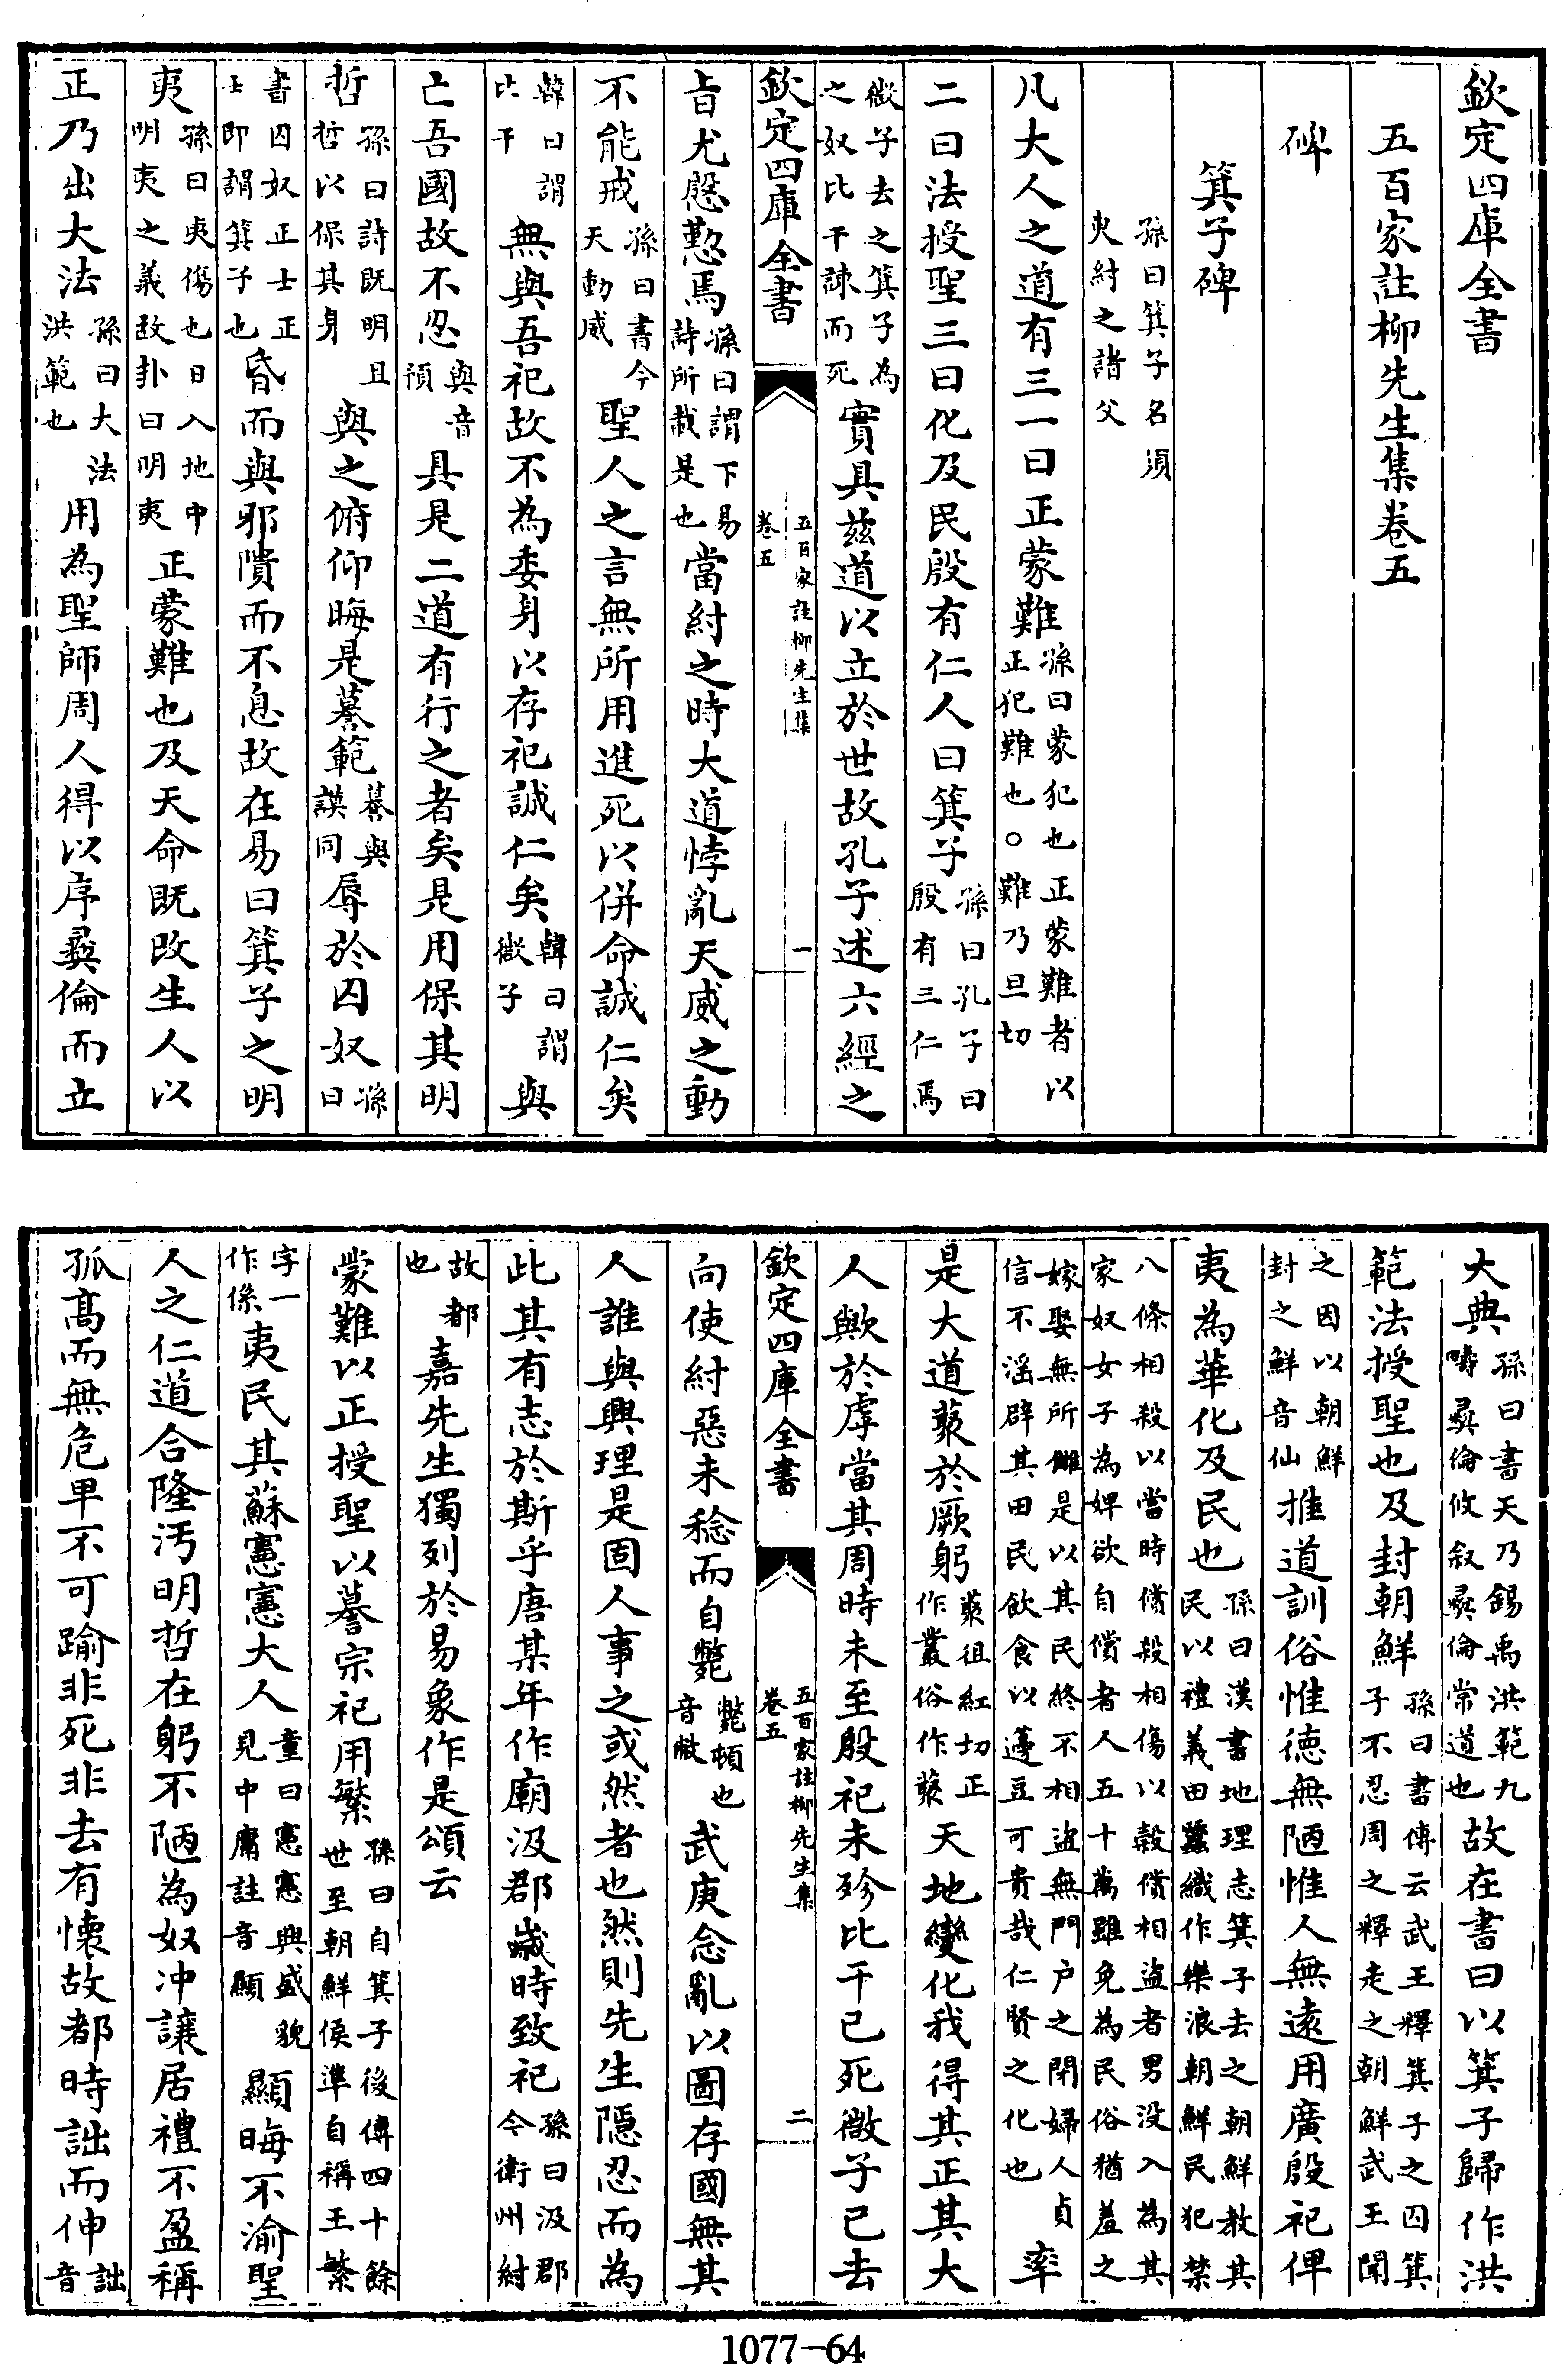 欽定四庫全書
五百家註柳先生集卷五
碑
箕子碑
孫曰箕子名須
臾紂之諸父
凡大人之道有三一曰正蒙難孫曰蒙犯也正蒙難者以正犯難也○難乃旦切
二曰法授聖三曰化及民殷有仁人曰箕子孫曰孔子曰殷有三仁焉
微子去之箕子為之奴比干諫而死實具茲道以立於世故孔子述六經之
欽定四庫全書
五百家註柳先生集
卷五
一
旨尤慇懃焉孫曰謂下易詩所載是也當紂之時大道悖亂天威之動
不能戒孫曰書今天動威聖人之言無所用進死以併命誠仁矣
韓曰謂比干無與吾祀故不為委身以存祀誠仁矣韓曰謂微子與
亡吾國故不忍與音預具是二道有行之者矣是用保其明
哲孫曰詩既明且哲以保其身與之俯仰晦是謩範謩與謨同辱於囚奴孫曰
書囚奴正士正士即謂箕子也昏而無邪隤而不息故在易曰箕子之明
夷孫曰夷傷也日入地中明夷之義故卦曰明夷正蒙難也及天命既改生人以
正乃出大法孫曰大法洪範也用為聖師周人得以序彝倫而立
大典孫曰書天乃錫禹洪範九疇彝倫攸叙彝倫常道也故在書曰以箕子歸作洪
範法授聖也及封朝鮮孫曰書傳云武王釋箕子之囚箕子不忍周之釋走之朝鮮武王聞
之因以朝鮮封之鮮音仙推道訓俗惟德無陋惟人無遠用廣殷祀俾
夷為華化及民也孫曰漢書地理志箕子去之朝鮮教其民以禮義田蠶織作樂浪朝鮮民犯禁
八條相殺以當時償殺相傷以穀償相盜者男没入為其家奴女子為婢欲自償者人五十萬雖免為民俗猶羞之
嫁娶無所雠是以其民終不相盜無門户之閉婦人貞信不淫辟其田民飲食以籩豆可貴哉仁賢之化也率
是大道藂於厥躬藂徂紅切正作叢俗作藂天地變化我得其正其大
人歟於虖當其周時未至殷祀未殄比干已死微子已去
欽定四庫全書
五百家註柳先生集
卷五
二
向使紂惡未稔而自斃斃頓也音敝武庚念亂以圖存國無其
人誰與興理是固人事之或然者也然則先生隱忍而為
此其有志於斯乎唐某年作廟汲郡歲時致祀孫曰汲郡今衛州紂
故都也嘉先生獨列於易象作是頌云
蒙難以正授聖以謩宗祀用繁孫曰自箕子後傳四十餘世至朝鮮侯準自稱王繁
字一作係夷民其蘇憲憲大人童曰憲憲興盛貌見中庸註音顯顯晦不渝聖
人之仁道合隆汚明哲在躬不陋為奴冲讓居禮不盈稱
孤高而無危卑不可踰非死非去有懷故都時詘而伸詘音
1077-64